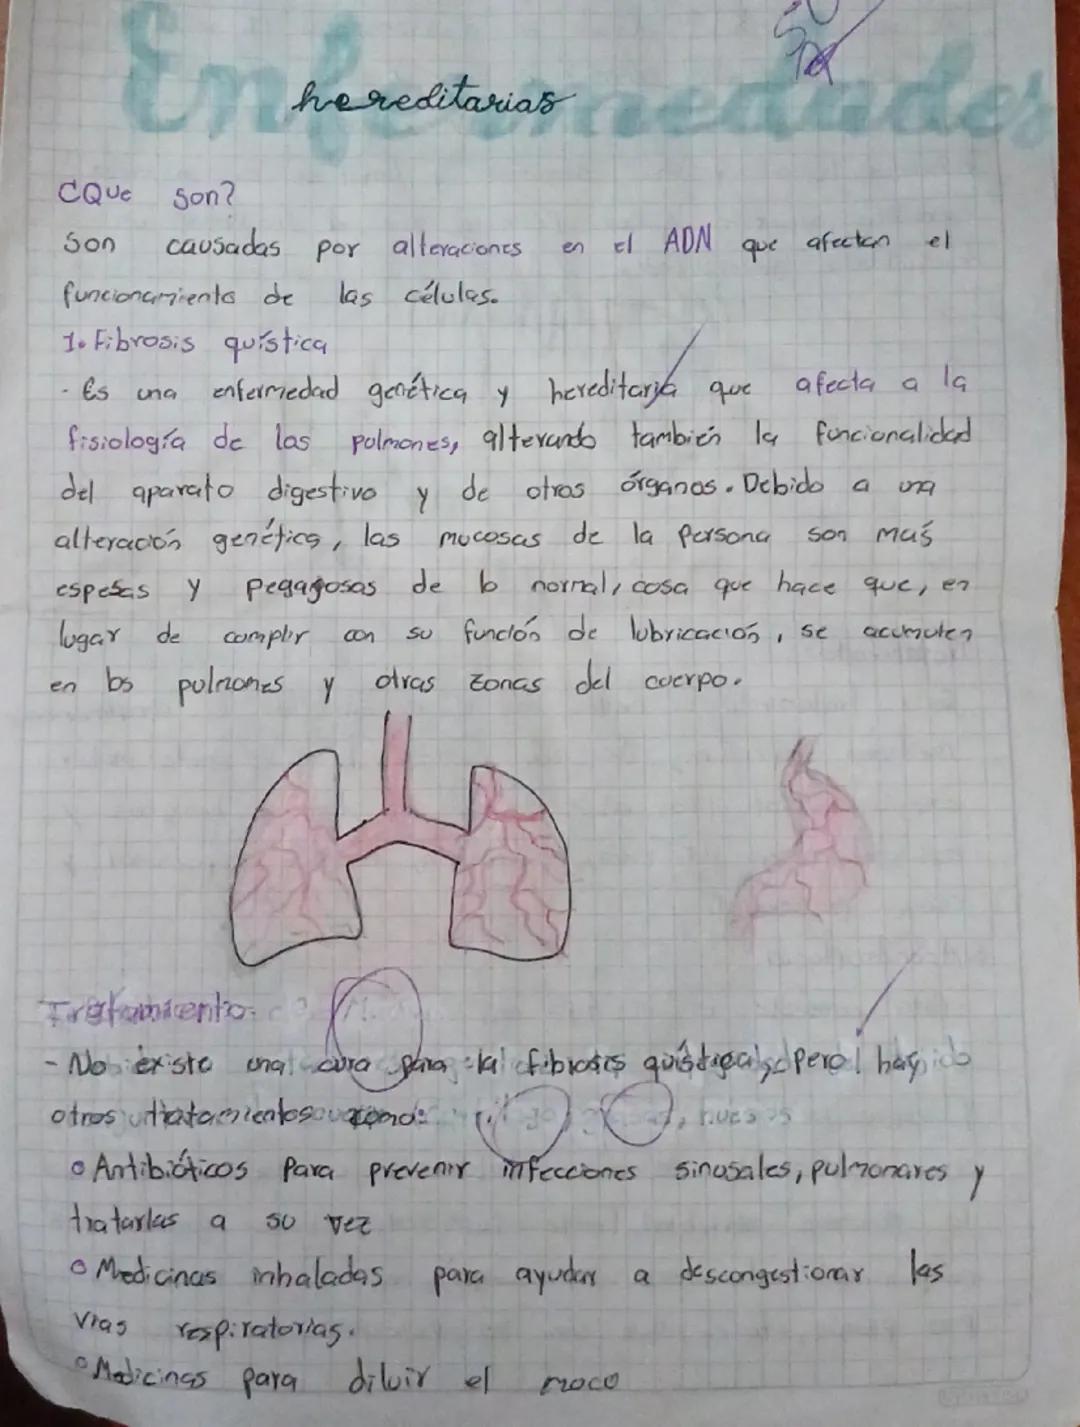 Enfermedades
hereditarias
¿Que son?
Son causadas por alteraciones en el ADN que afectan el
funcionamiento de las células.
1. Fibrosis quística
- Es una enfermedad genética y hereditaria que afecta a la
fisiología de los pulmones, alterando también la funcionalidad
del aparato digestivo y de otros órganos. Debido a una
alteración genética, las mucosas de la persona son más
espesas y pegagosas de lo normal, cosa que hace que, en
lugar de complir con su función de lubricación, se acumulen
en los pulmones y otras zonas del cuerpo.
Tratamiento
- No existe una cura para la fibrosis quística, pero hay
otros tratamientos como:
Antibióticos para prevenir infecciones sinusales, pulmonares y
tratarlas a su vez
Medicinas inhaladas para ayudar a descongestionar las
vías respiratorias.
Medicinas para diluir el moco